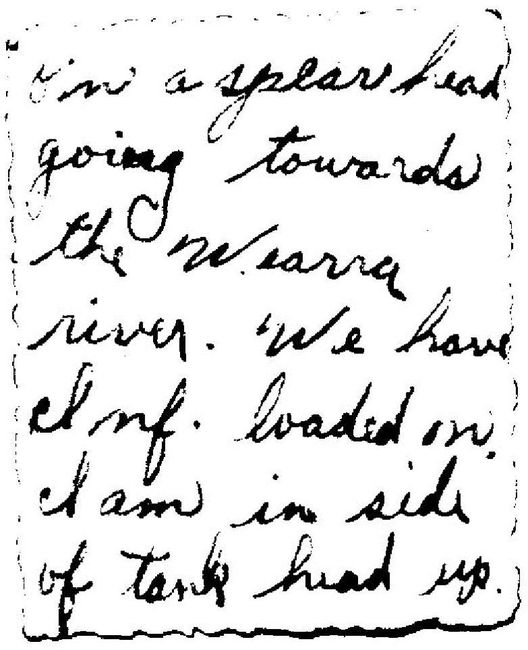 I'm a spear head
going towards
the Wearra
river. We have
Inf. loaded on.
I am in side
of tank head up.